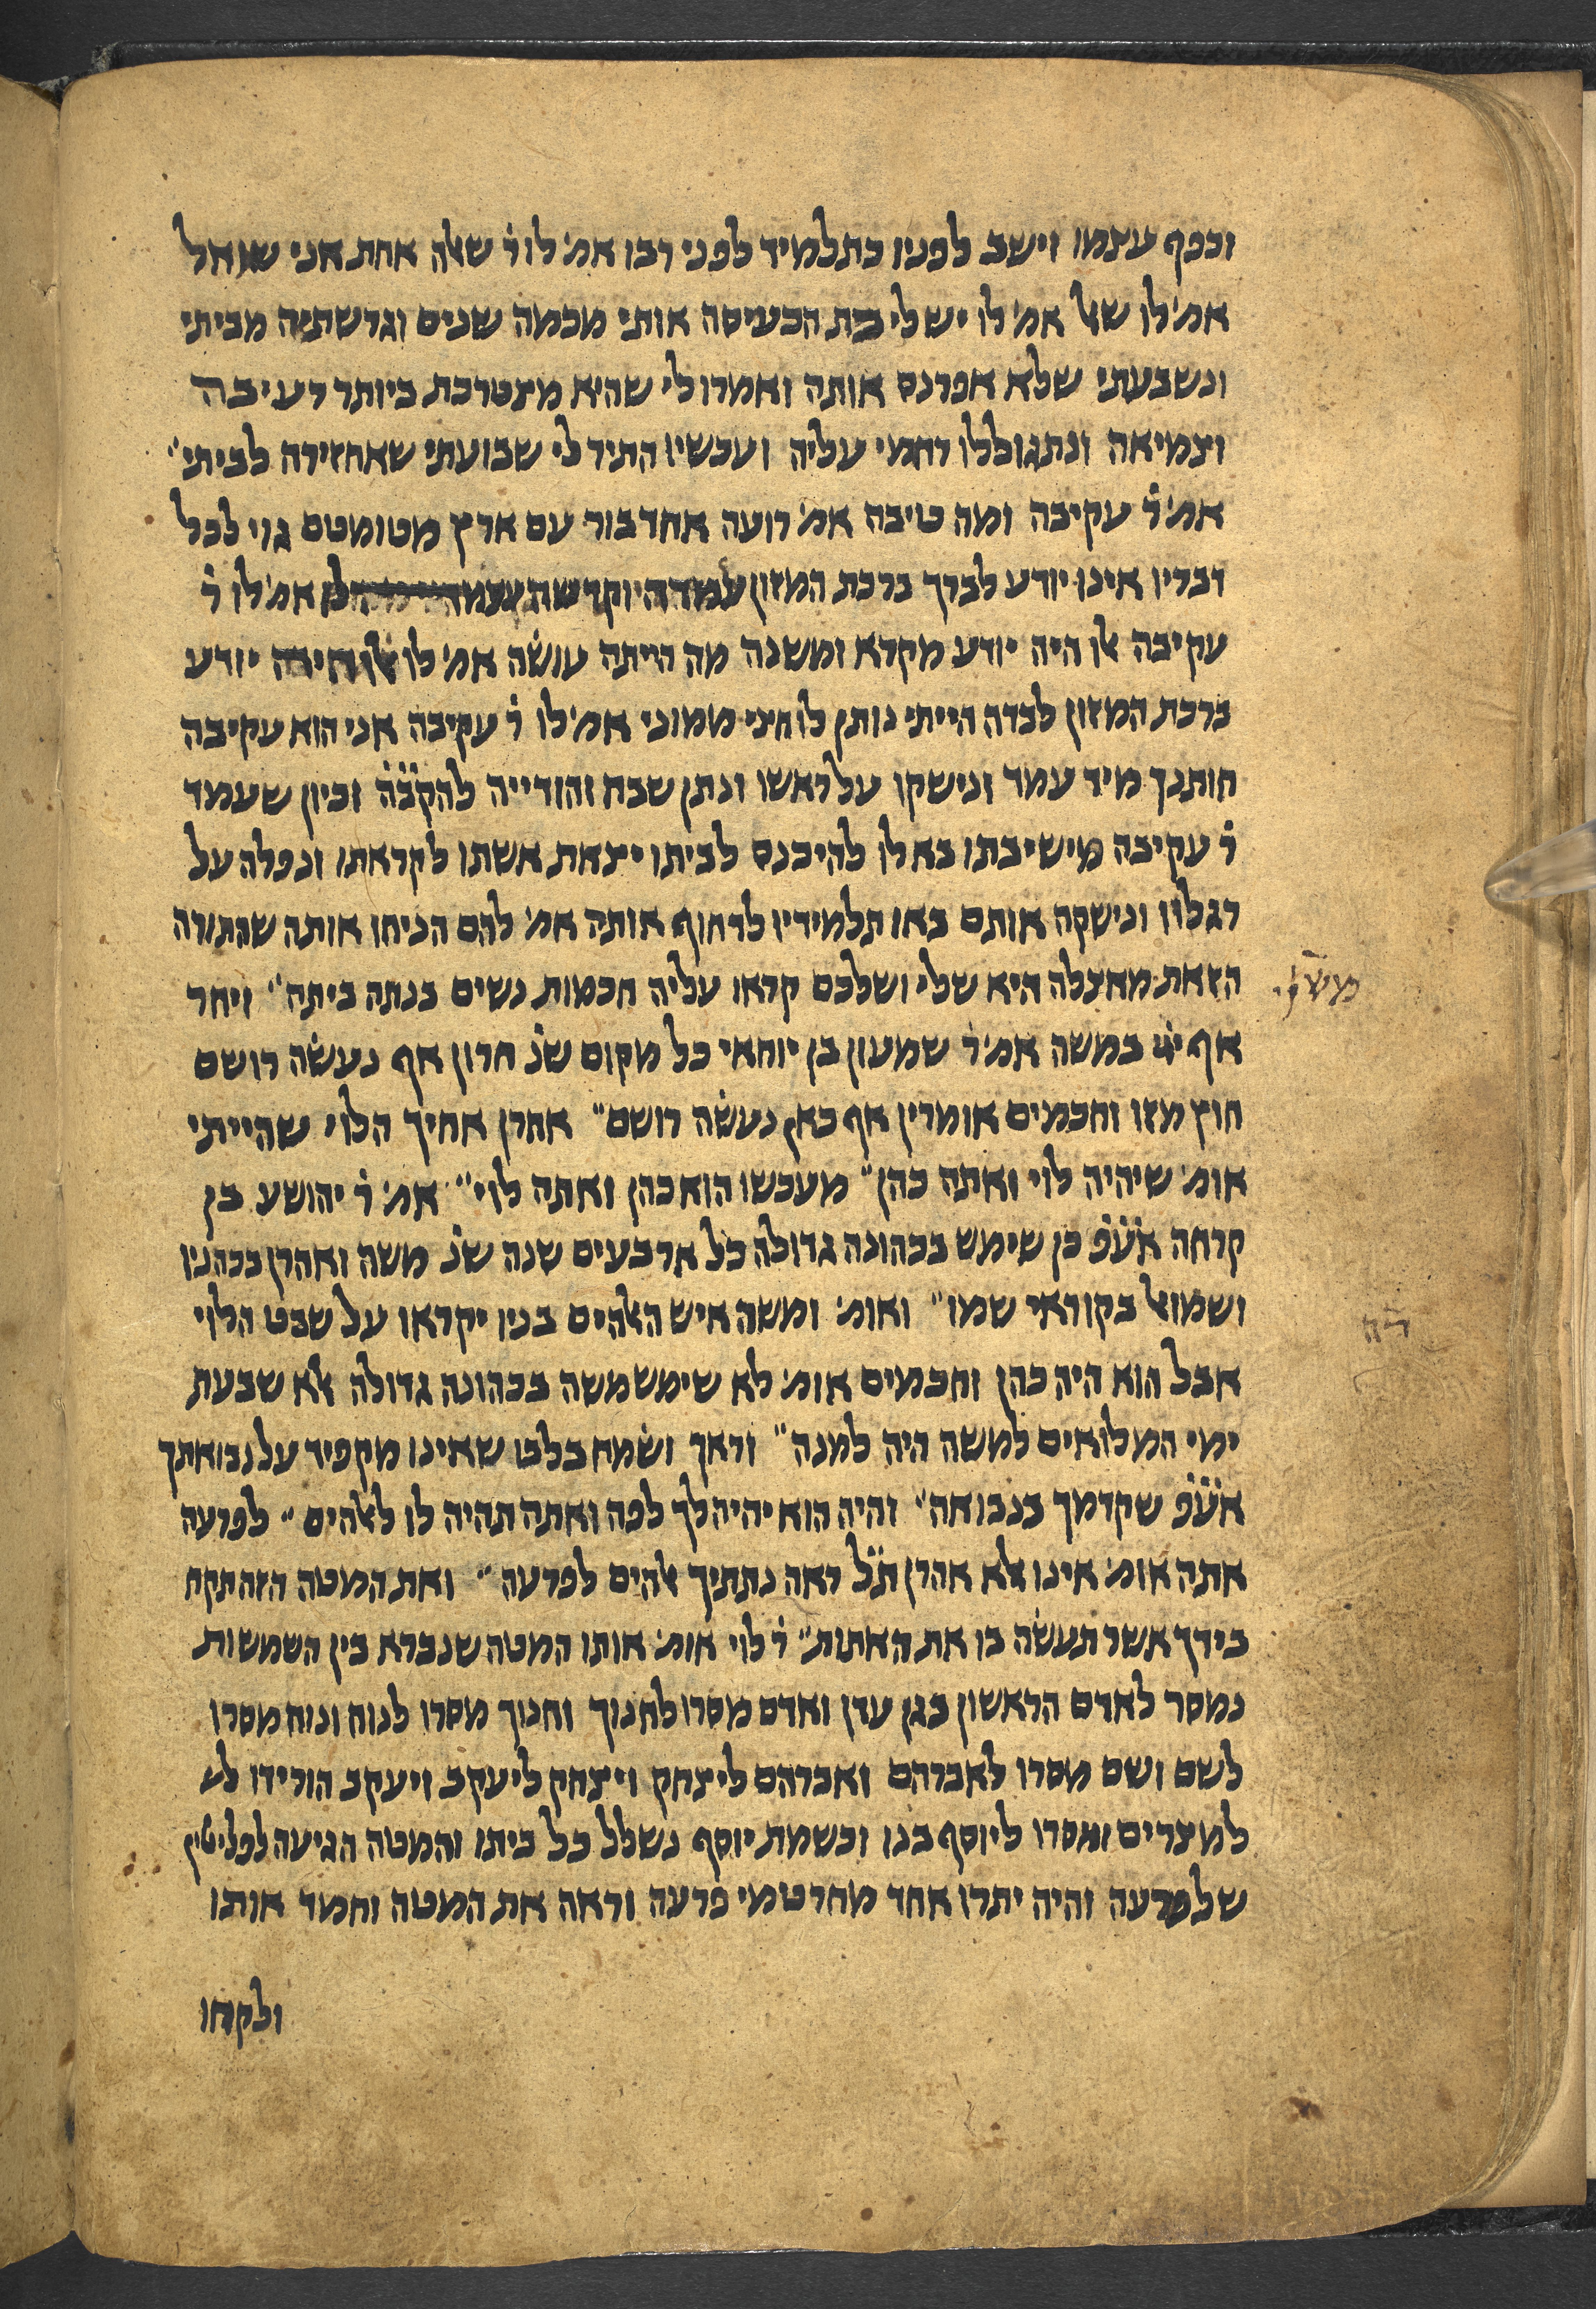 וכפף עצמו וישב לפניו כתלמיד לפני רבו אמ' לו ר' שאלה אחת אני שואל
אמ' לו שאל אמ' לו יש לי בת הכעיסה אותי מכמה שנים וגרשתיה מביתי
ונשבעתי שלא אפרנס אותה ואמרו לי שהיא מצטרכת ביותר רעיבה
וצמיאה ונתגוללו רחמי עליה ועכשיו התיר לי שבועתי שאחזירה לביתי
אמ' ר' עקיבה ומה טיבה אמ' רועה אחד בור עם ארץ מטומטם גוי לכל
דבריו אינו יודע לברך ברכת המזון עמדה וקדשה עצמה לו אמ' לו ר'
עקיבה אלו היה יודע מקרא ומשנה מה הייתה עושה אמ' לו אלו היה יודע
ברכת המזון לבדה הייתי נותן לו חצי ממוני אמ' לו ר' עקיבה אני הוא עקיבה
חותנך מיד עמד ונישקו על ראשו ונתן שבח והודייה להקב"ה וכיון שעמד
ר' עקיבה מישיבתו בא לו להיכנס לביתו יצאת אשתו לקראתו ונפלה על
רגליו ונישקה אותם באו תלמידיו לדחוף אותה אמ' להם הניחו אותה שהתורה
הזאת מאצלה היא שלי ושלכם קראו עליה חכמות נשים בנתה ביתה" ויחר
אף יי במשה אמ' ר' שמעון בן יוחאי כל מקום שנ' חרון אף נעשה רושם
חוץ מזו וחכמים אומרין אף כאן נעשה רושם" אהרן אחיך הלוי שהייתי
אומ' שיהיה לוי ואתה כהן" מעכשו הוא כהן ואתה לוי" אמ' ר' יהושע בן
קרחה אעפ כן שימש בכהונה גדולה כל ארבעים שנה שנ' משה ואהרן בכהניו
ושמואל בקוראי שמו" ואומ' ומשה איש האלהים בניו יקראו על שבט הלוי
אבל הוא היה כהן וחכמים אומ' לא שימש משה בכהונה גדולה אלא שבעת
ימי המלואים למשה היה למנה" וראך ושמח בלבו שאינו מקפיד על נבואתך
אעפ שקדמך בנבואה" והיה הוא יהיה לך לפה ואתה תהיה לו לאלהים" לפרעה
אתה אומ' אינו אלא אהרן תל ראה נתתיך אלהים לפרעה" ואת המטה הזה תקח
בידך אשר תעשה בו את האתות" ר' לוי אומ' אותו המטה שנברא בין השמשות
נמסר לאדם הראשון בגן עדן ואדם מסרו לחנוך וחנוך מסרו לנוח ונוח מסרו
לשם ושם מסרו לאברהם ואברהם ליצחק ויצחק ליעקב ויעקב הורידו
למצרים ומסרו ליוסף בנו וכשמת יוסף נשלל כל ביתו והמטה הגיעה לפליטין
של פרעה והיה יתרו אחד מחרטמי פרעה וראה את המטה וחמד אותו
ולקחו